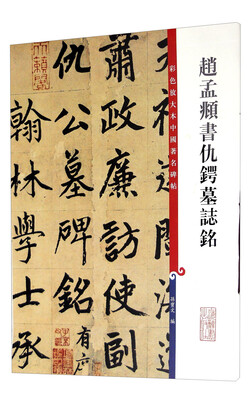 趙孟頫書仇鍔墓誌銘
彩色放大本中國著名碑帖
孫寶文 編
肅政廉訪使副
仇公墓碑銘有序
翰林學士承